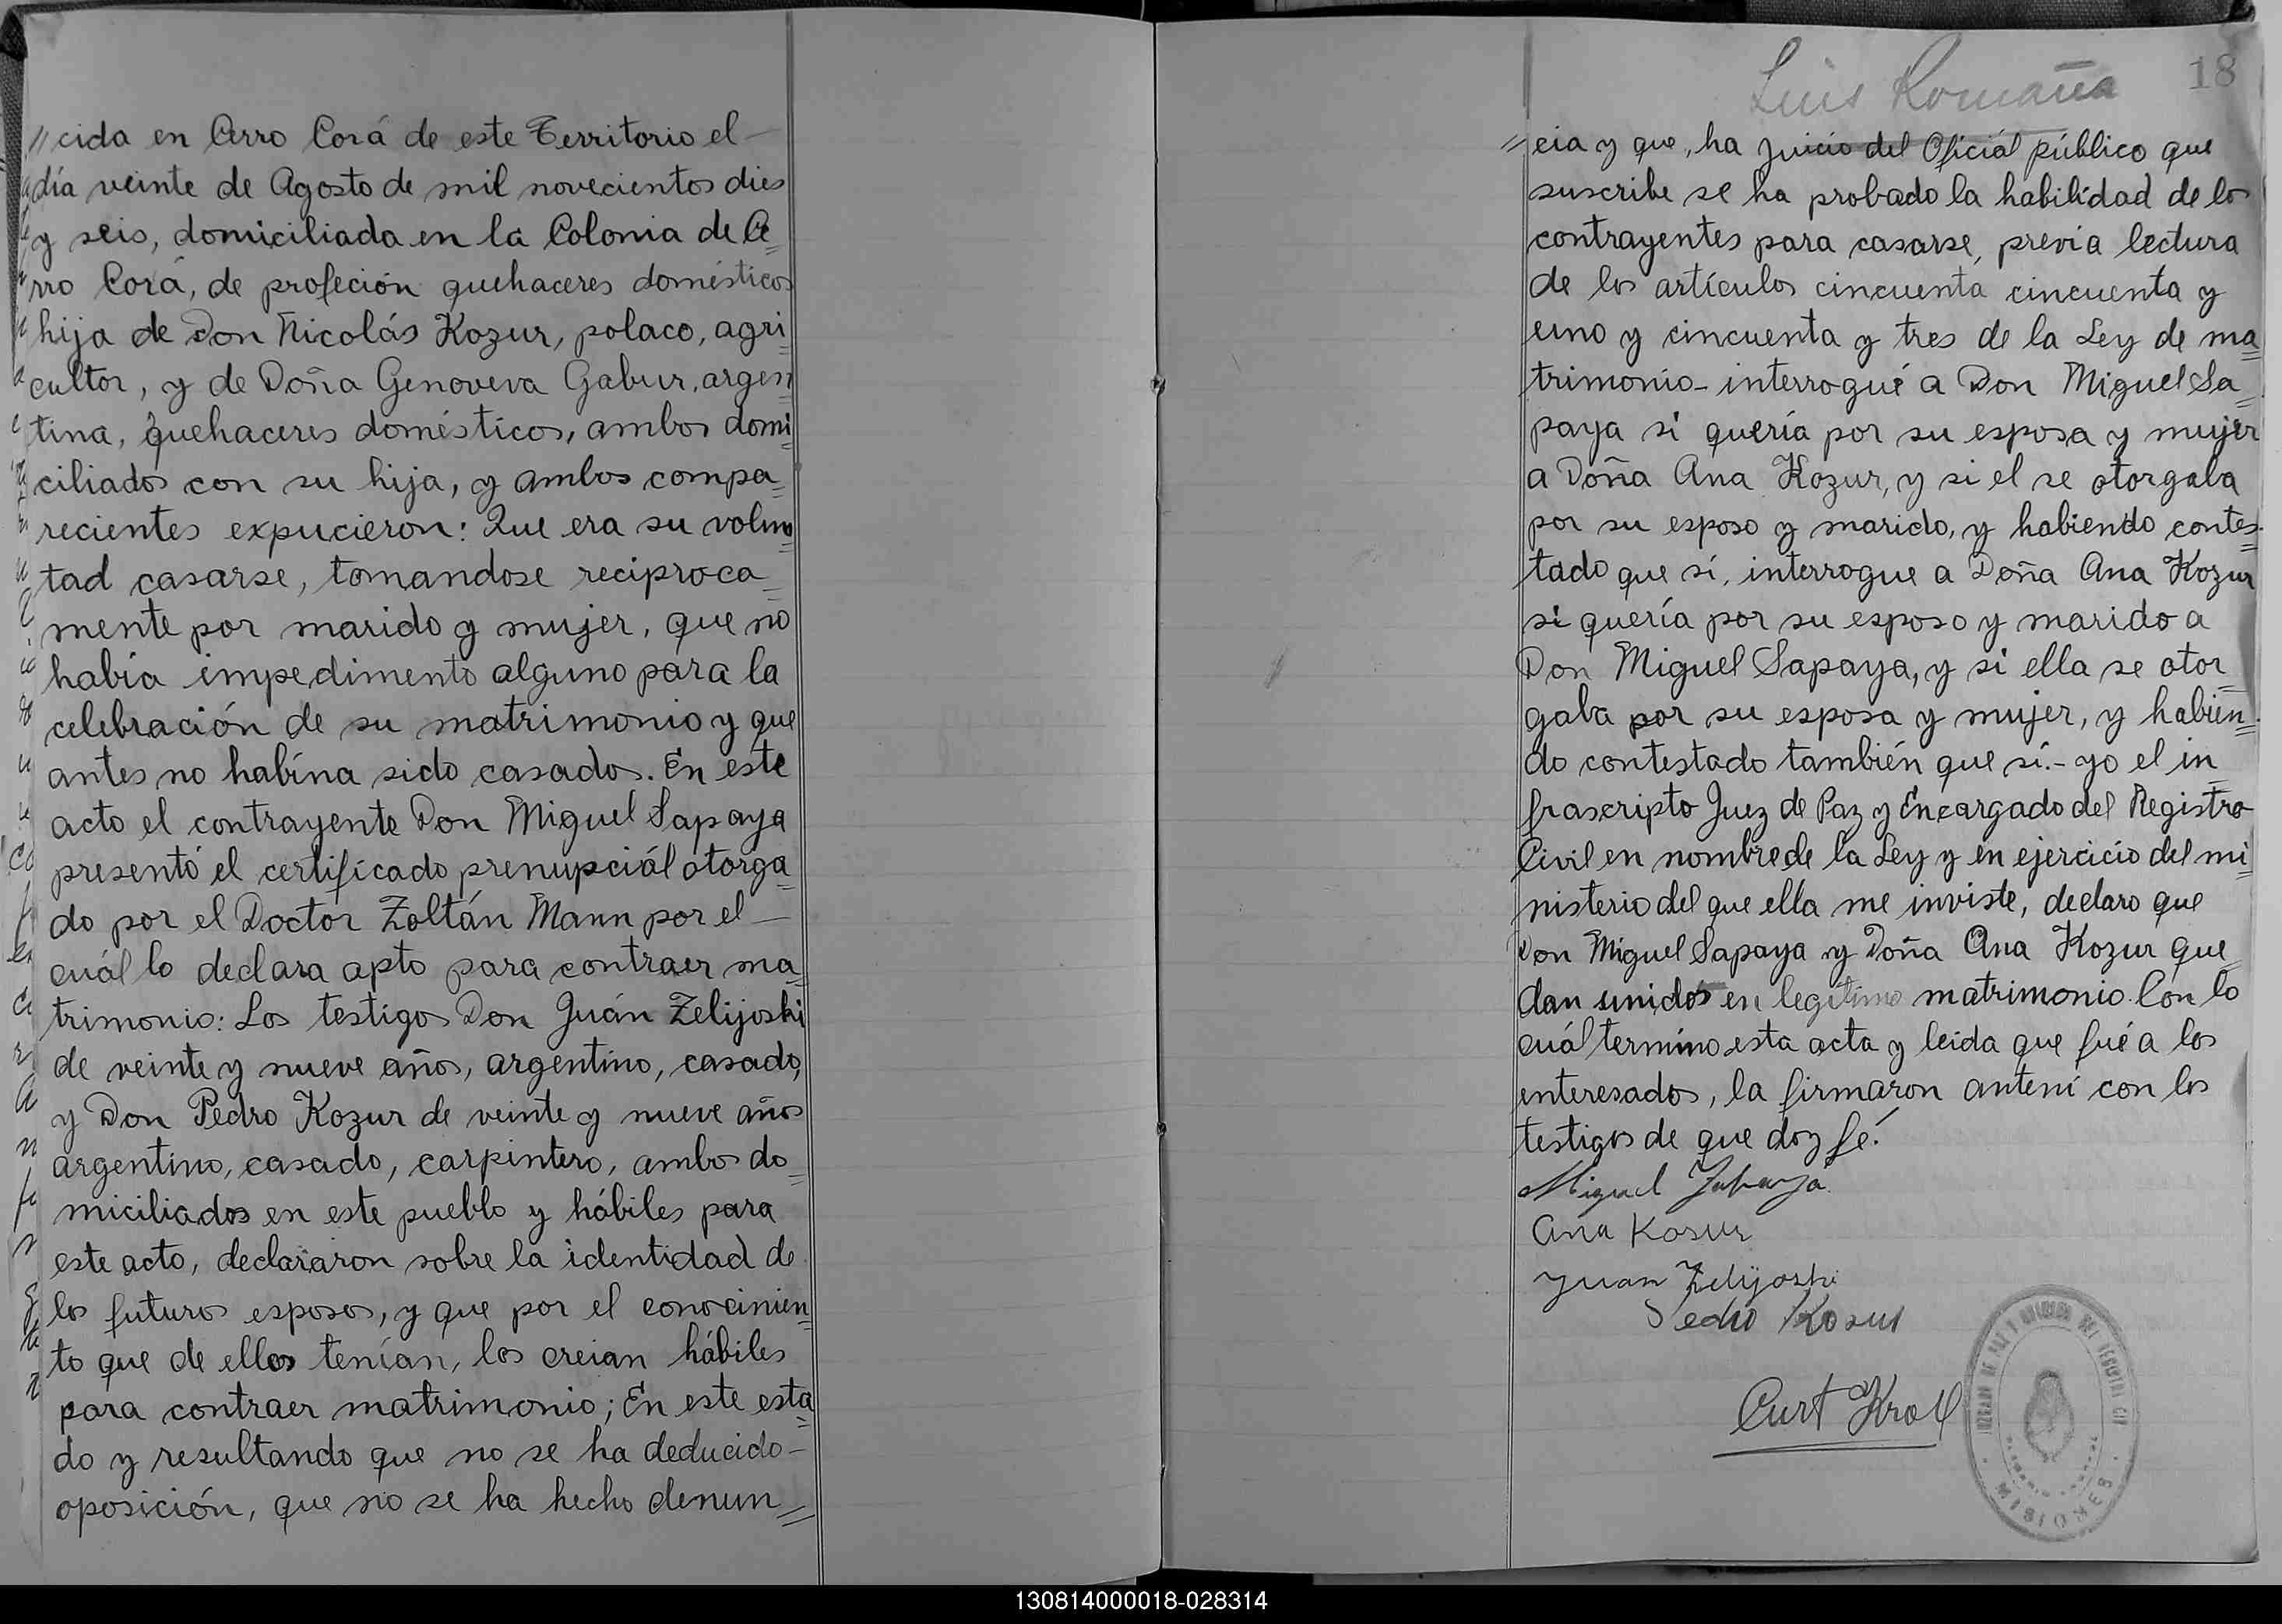 //cida en Cerro Corá de este Territorio el—
día veinte de Agosto de mil novecientos dies
y seis, domiciliada en la Colonia de Ce=
rro Corá, de profeción quehaceres domésticos
hija de Don Nicolás Kozur, polaco, agri=
cultor, y de Doña Genoveva Gabur, argen=
tina, quehaceres domésticos, ambos domi=
ciliados con su hija, y ambos compa=
recientes expucieron: Que era su volun=
tad casarse, tomandose reciproca=
mente por marido y mujer, que no
había impedimento alguno para la
celebración de su matrimonio y que
antes no habína sido casados. En este
acto el contrayente Don Miguel Sapaya
presentó el certificado prenupciál otorga=
do por el Doctor Zoltán Mann por el—
cuál lo declara apto para contraer ma=
trimonio: Los testigos Don Juán Zelijoski
de veinte y nueve años, argentino, casado,
y Don Pedro Kozur de veinte y nueve años
argentino, casado, carpintero, ambos do=
miciliados en este pueblo y hábiles para
este acto, declararon sobre la identidad de
los futuros esposos, y que por el conocinien=
to que de ellos tenían, los creian hábiles
para contraer matrimonio; En este esta=
do y resultando que no se ha deducido—
oposición, que no se ha hecho denun//
Luis Romaña
18
//cia y que, ha juicio del Oficiál público que
suscribe se ha probado la habilidad de los
contrayentes para casarse, previa lectura
de los artículos cincuenta cincuenta y
uno y cincuenta y tres de la Ley de ma=
trimonio- interrogué a Don Miguel Sa=
paya si quería por su esposa y mujer
a Doña Ana Kozur, y si el se otorgaba
por su esposo y marido, y habiendo contes=
tado que sí, interrogue a Doña Ana Kozur
si quería por su esposo y marido a
Don Miguel Sapaya, y si ella se otor=
gaba por su esposa y mujer, y habien=
do contestado también que sí.- yo el in=
frascripto Juez de Paz y Encargado del Registro
Civil en nombre de la Ley y en ejercicio del mi=
nisterio del que ella me inviste, declaro que
Don Miguel Sapaya y Doña Ana Kozur que=
dan unidos en legítimo matrimonio. Con lo
cuál termino esta acta y leida que fué a los
interesados, la firmaron antemí con los
testigos de que doy fé.
Miguel Sapaya
Ana Kosur
Juan Zelijoski
Pedro Kosur
Curt Kroll
JUZGADO DE PAZ Y OFICINA DEL REGISTRO CIVIL
MISIONES
130814000018-028314